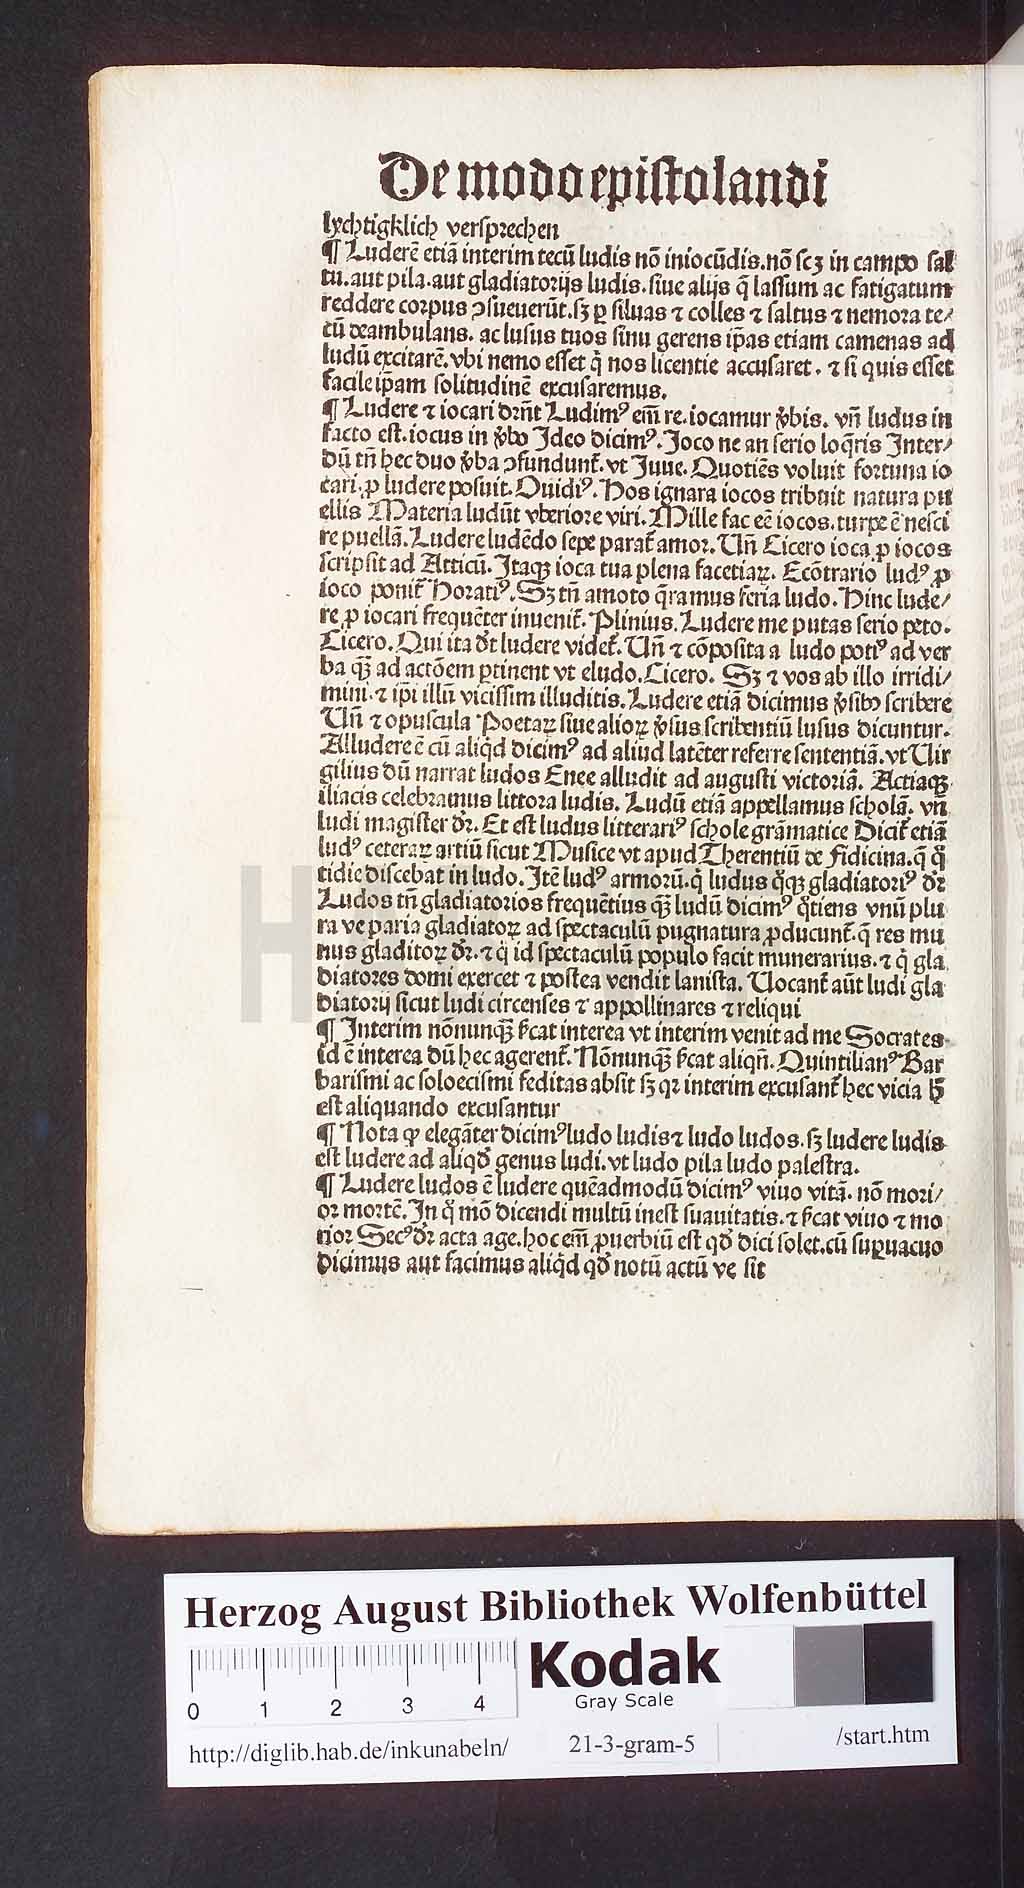 De modo epistolandi
lychtigklich versprechen
¶ Luderē etiā interim tecū ludis nō iniocūdis.nō scꝫ in campo sal
tu.aut pila.aut gladiatorijs ludis.siue alijs q̄ lassum ac fatigatum
reddere corpus ↄsueuerūt.sꝫ ꝑ siluas ⁊ colles ⁊ saltus ⁊ nemora te/
cū deambulans. ac lusus tuos sinu gerens ip̄as etiam camenas ad
ludū excitarē.vbi nemo esset q̇ nos licentie accusaret. ⁊ si quis esset
facile ip̄am solitudinē excusaremus.
¶ Ludere ⁊ iocari dr̄nt Ludimꝰ em̄ re.iocamur v̓bis. vn̄ ludus in
facto est.iocus in v̓bo Ideo dicimꝰ.Joco ne an serio loq̄ris Inter/
dū tn̄ hec duo v̓ba ↄfundunt᷑.vt Juue. Quotiēs voluit fortuna io
cari.ꝓ ludere posuit.Ouidiꝰ. Hos ignara iocos tribuit natura pu
ellis Materia ludūt vberiore viri.Mille fac eē iocos.turpe ē nesci
re puellā.Ludere ludēdo sepe parat᷑ amor.Un̄ Cicero ioca ꝓ iocos
scripsit ad Atticū.Itaqꝫ ioca tua plena facetiaꝝ. Ecōtrario ludꝰ ꝓ
ioco ponit᷑ Horatiꝰ.Sꝫ tn̄ amoto q̄ramus seria ludo.Hinc lude/
re ꝓ iocari frequēter inuenit᷑. Plinius.Ludere me putas serio peto.
Cicero.Qui ita d̓t ludere videt᷑. Un̄ ⁊ cōposita a ludo potiꝰ ad ver
ba qꝫ̄ ad actōem ꝑtinent vt eludo.Cicero. Sꝫ ⁊ vos ab illo irridi/
mini.⁊ ip̄i illū vicissim illuditis.Ludere etiā dicimus v̓sibꝰ scribere
Un̄ ⁊ opuscula Poetaꝝ siue alioꝝ v̓sus scribentiū lusus dicuntur.
Alludere ē cū aliq̇d dicimꝰ ad aliud latēter referre sententiā.vt Uir
gilius dū narrat ludos Enee alludit ad augusti victoriā. Actiaqꝫ
iliacis celebramus littora ludis. Ludū etiā appellamus scholā. vn̄
ludi magister dr̄. Et est ludus litterariꝰ schole grāmatice Dicit᷑ etiā
ludꝰ ceteraꝝ artiū sicut Musice vt apud Therentiū de fidicina.q̄ q̊
tidie discebat in ludo.Itē ludꝰ armorū.q̇ ludus q̊qꝫ gladiatoriꝰ dr̄
Ludos tn̄ gladiatorios frequētius qꝫ̄ ludū dicimꝰ q̊tiens vnū plu
ra ve paria gladiatoꝝ ad spectaculū pugnatura ꝓducunt᷑.q̄ res mu
nus gladitoꝝ dr̄.⁊ q̇ id spectaculū populo facit munerarius.⁊ q̇ gla
diatores domi exercet ⁊ postea vendit lanista. Uocant᷑ aūt ludi gla
diatorij sicut ludi circenses ⁊ appollinares ⁊ reliqui
¶ Interim nōnunqꝫ̄ s̓cat interea vt interim venit ad me Socrates
id ē interea dū hec agerent᷑. Nōnunqꝫ̄ s̓cat aliqn̄. Quintilianꝰ Bar
barismi ac soloecismi feditas absit sꝫ qꝛ interim excusant᷑ hec vicia h̄
est aliquando excusantur
¶ Nota ꝙ elegāter dicimꝰ ludo ludis ⁊ ludo ludos.sꝫ ludere ludis
est ludere ad aliqd̓ genus ludi.vt ludo pila ludo palestra.
¶ Ludere ludos ē ludere quēadmodū dicimꝰ viuo vitā. nō mori/
or mortē.In q̊ mō dicendi multū inest suauitatis.⁊ s̓cat viuo ⁊ mo
rior Secꝰ dr̄ acta age.hoc em̄ ꝓuerbiū est qd̓ dici solet.cū suꝑuacuo
dicimus aut facimus aliq̇d qd̓ notū actū ve sit
HAB
Herzog August Bibliothek Wolfenbüttel
0 1 2 3 4
Kodak
Gray Scale
http://diglib.hab.de/inkunabeln/
21-3-gram-5
/start.htm